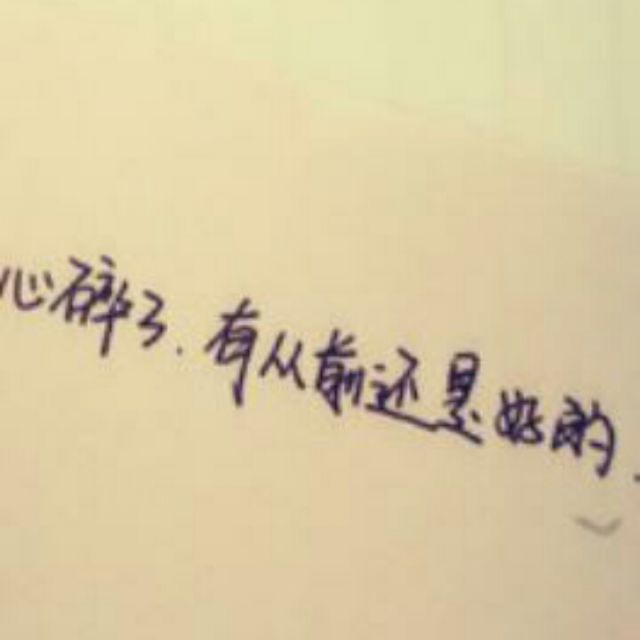 心碎了.有从前还是好的.